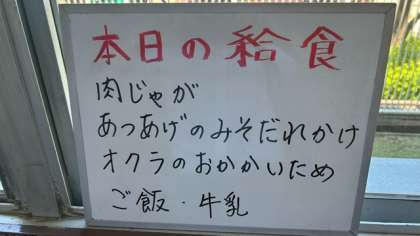 本日の給食
肉じゃが
あつあげのみそだれかけ
オクラのおかかいため
ご飯・牛乳